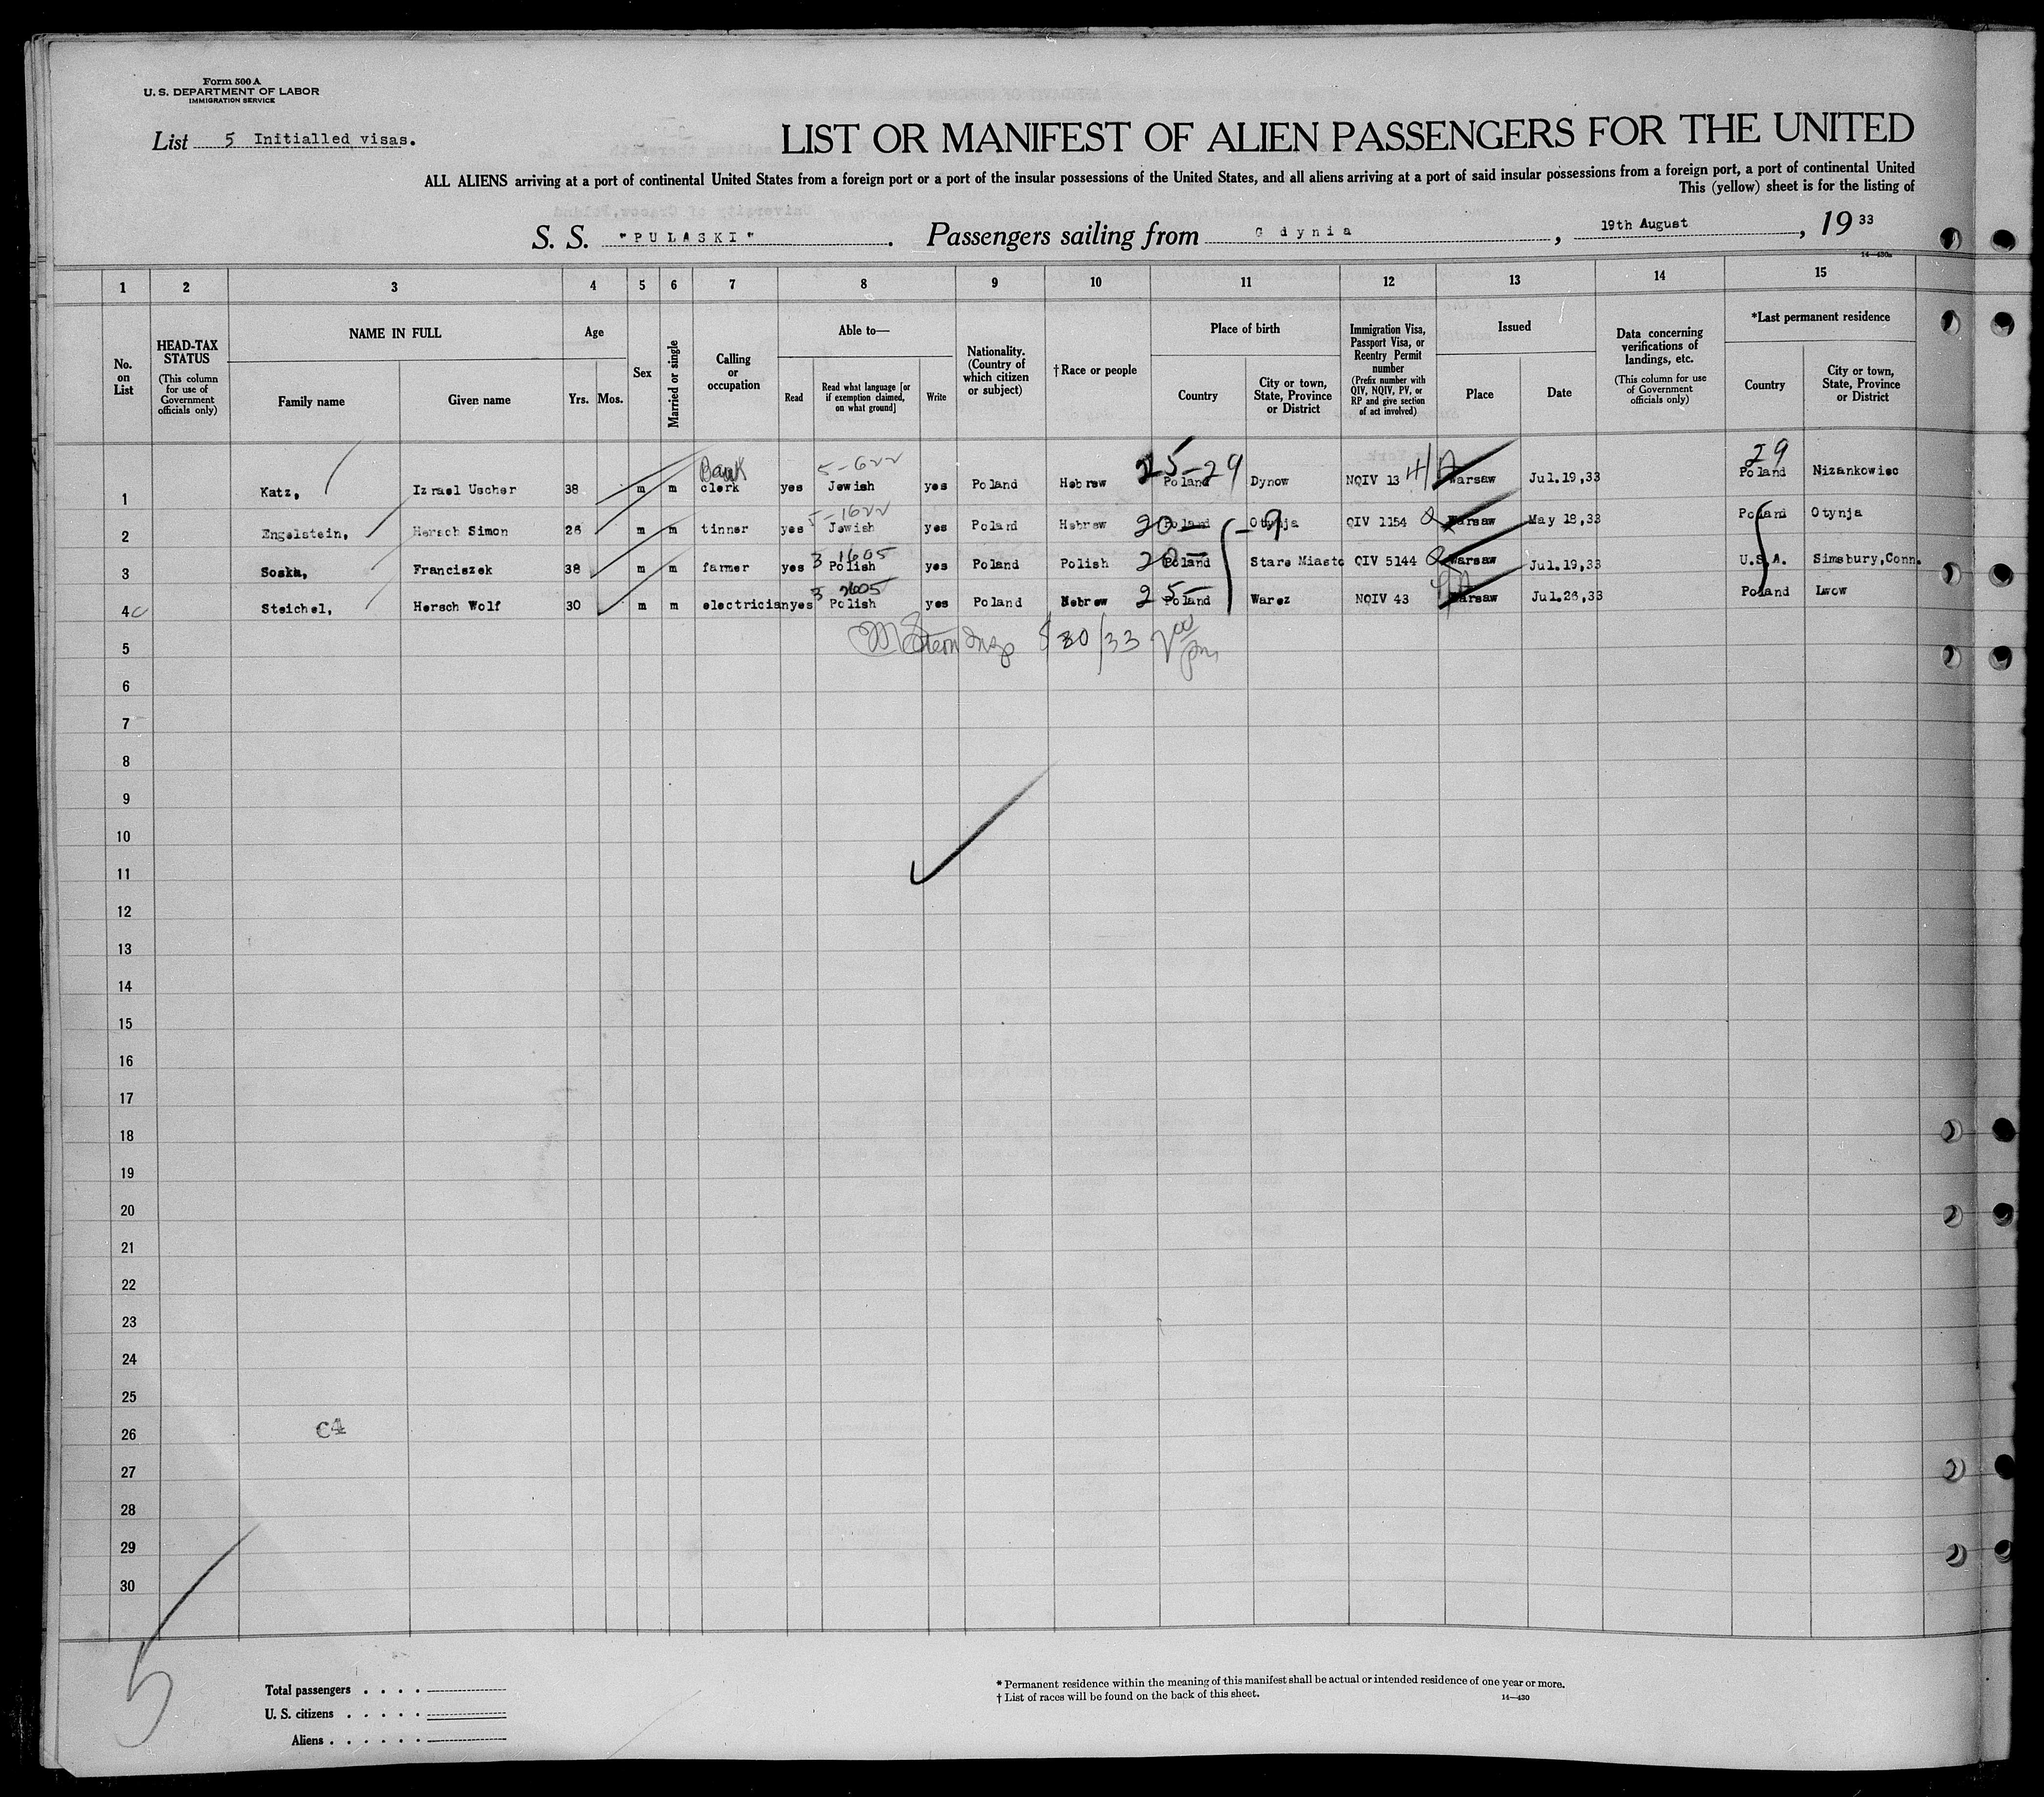 Form 500 A
U. S. DEPARTMENT OF LABOR
IMMIGRATION SERVICE
List 5 Initialled visas.
LIST OR MANIFEST OF ALIEN PASSENGERS FOR THE UNITED
ALL ALIENS arriving at a port of continental United States from a foreign port or a port of the insular possessions of the United States, and all aliens arriving at a port of said insular possessions from a foreign port, a port of continental United
This (yellow) sheet is for the listing of
S. S. "PULASKI". Passengers sailing from Gdynia, 19th August, 1933
14—430a
1 2 3 4 5 6 7 8 9 10 11 12 13 14 15
No. on List
HEAD-TAX STATUS (This column for use of Government officials only)
NAME IN FULL
Family name Given name
Age
Yrs. Mos.
Sex
Married or single
Calling or occupation
Able to—
Read Read what language [or if exemption claimed, on what ground] Write
Nationality. (Country of which citizen or subject)
†Race or people
Place of birth
Country City or town, State, Province or District
Immigration Visa, Passport Visa, or Reentry Permit number (Prefix number with QIV, NQIV, PV, or RP and give section of act involved)
Issued
Place Date
Data concerning verifications of landings, etc. (This column for use of Government officials only)
*Last permanent residence
Country City or town, State, Province or District
Bank 5-622 25-29 29
1 Katz, Izrael Uscher 38 m m clerk yes Jewish yes Poland Hebrew Poland Dynow NQIV 13 4/A Warsaw Jul.19,33 Poland Nizankowiec
5-1622
2 Engelstein, Hersch Simon 26 m m tinner yes Jewish yes Poland Hebrew 20- Poland -9 Otynja QIV 1154 Warsaw May 18,33 Poland Otynja
3 1605
3 Soska, Franciszek 38 m m farmer yes Polish yes Poland Polish 20- Poland Stare Miasto QIV 5144 Warsaw Jul.19,33 U.S.A. Simsbury,Conn.
3 2605
4 C Steichel, Hersch Wolf 30 m m electrician yes Polish yes Poland Hebrew 25- Poland Warez NQIV 43 4/A Warsaw Jul.26,33 Poland Lwow
Stern Insp 8/30/33 2 00 pm
5
6
7
8
9
10
11
12
13
14
15
16
17
18
19
20
21
22
23
24
25
26 C4
27
28
29
30
5
Total passengers . . . .
U. S. citizens . . . . .
Aliens . . . . . .
* Permanent residence within the meaning of this manifest shall be actual or intended residence of one year or more.
† List of races will be found on the back of this sheet.
14—430